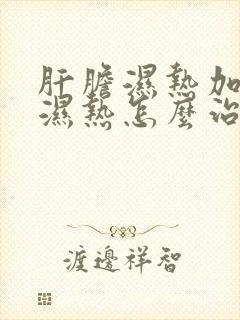 肝膽濕熱加
濕熱怎麼治
渡邊祥智